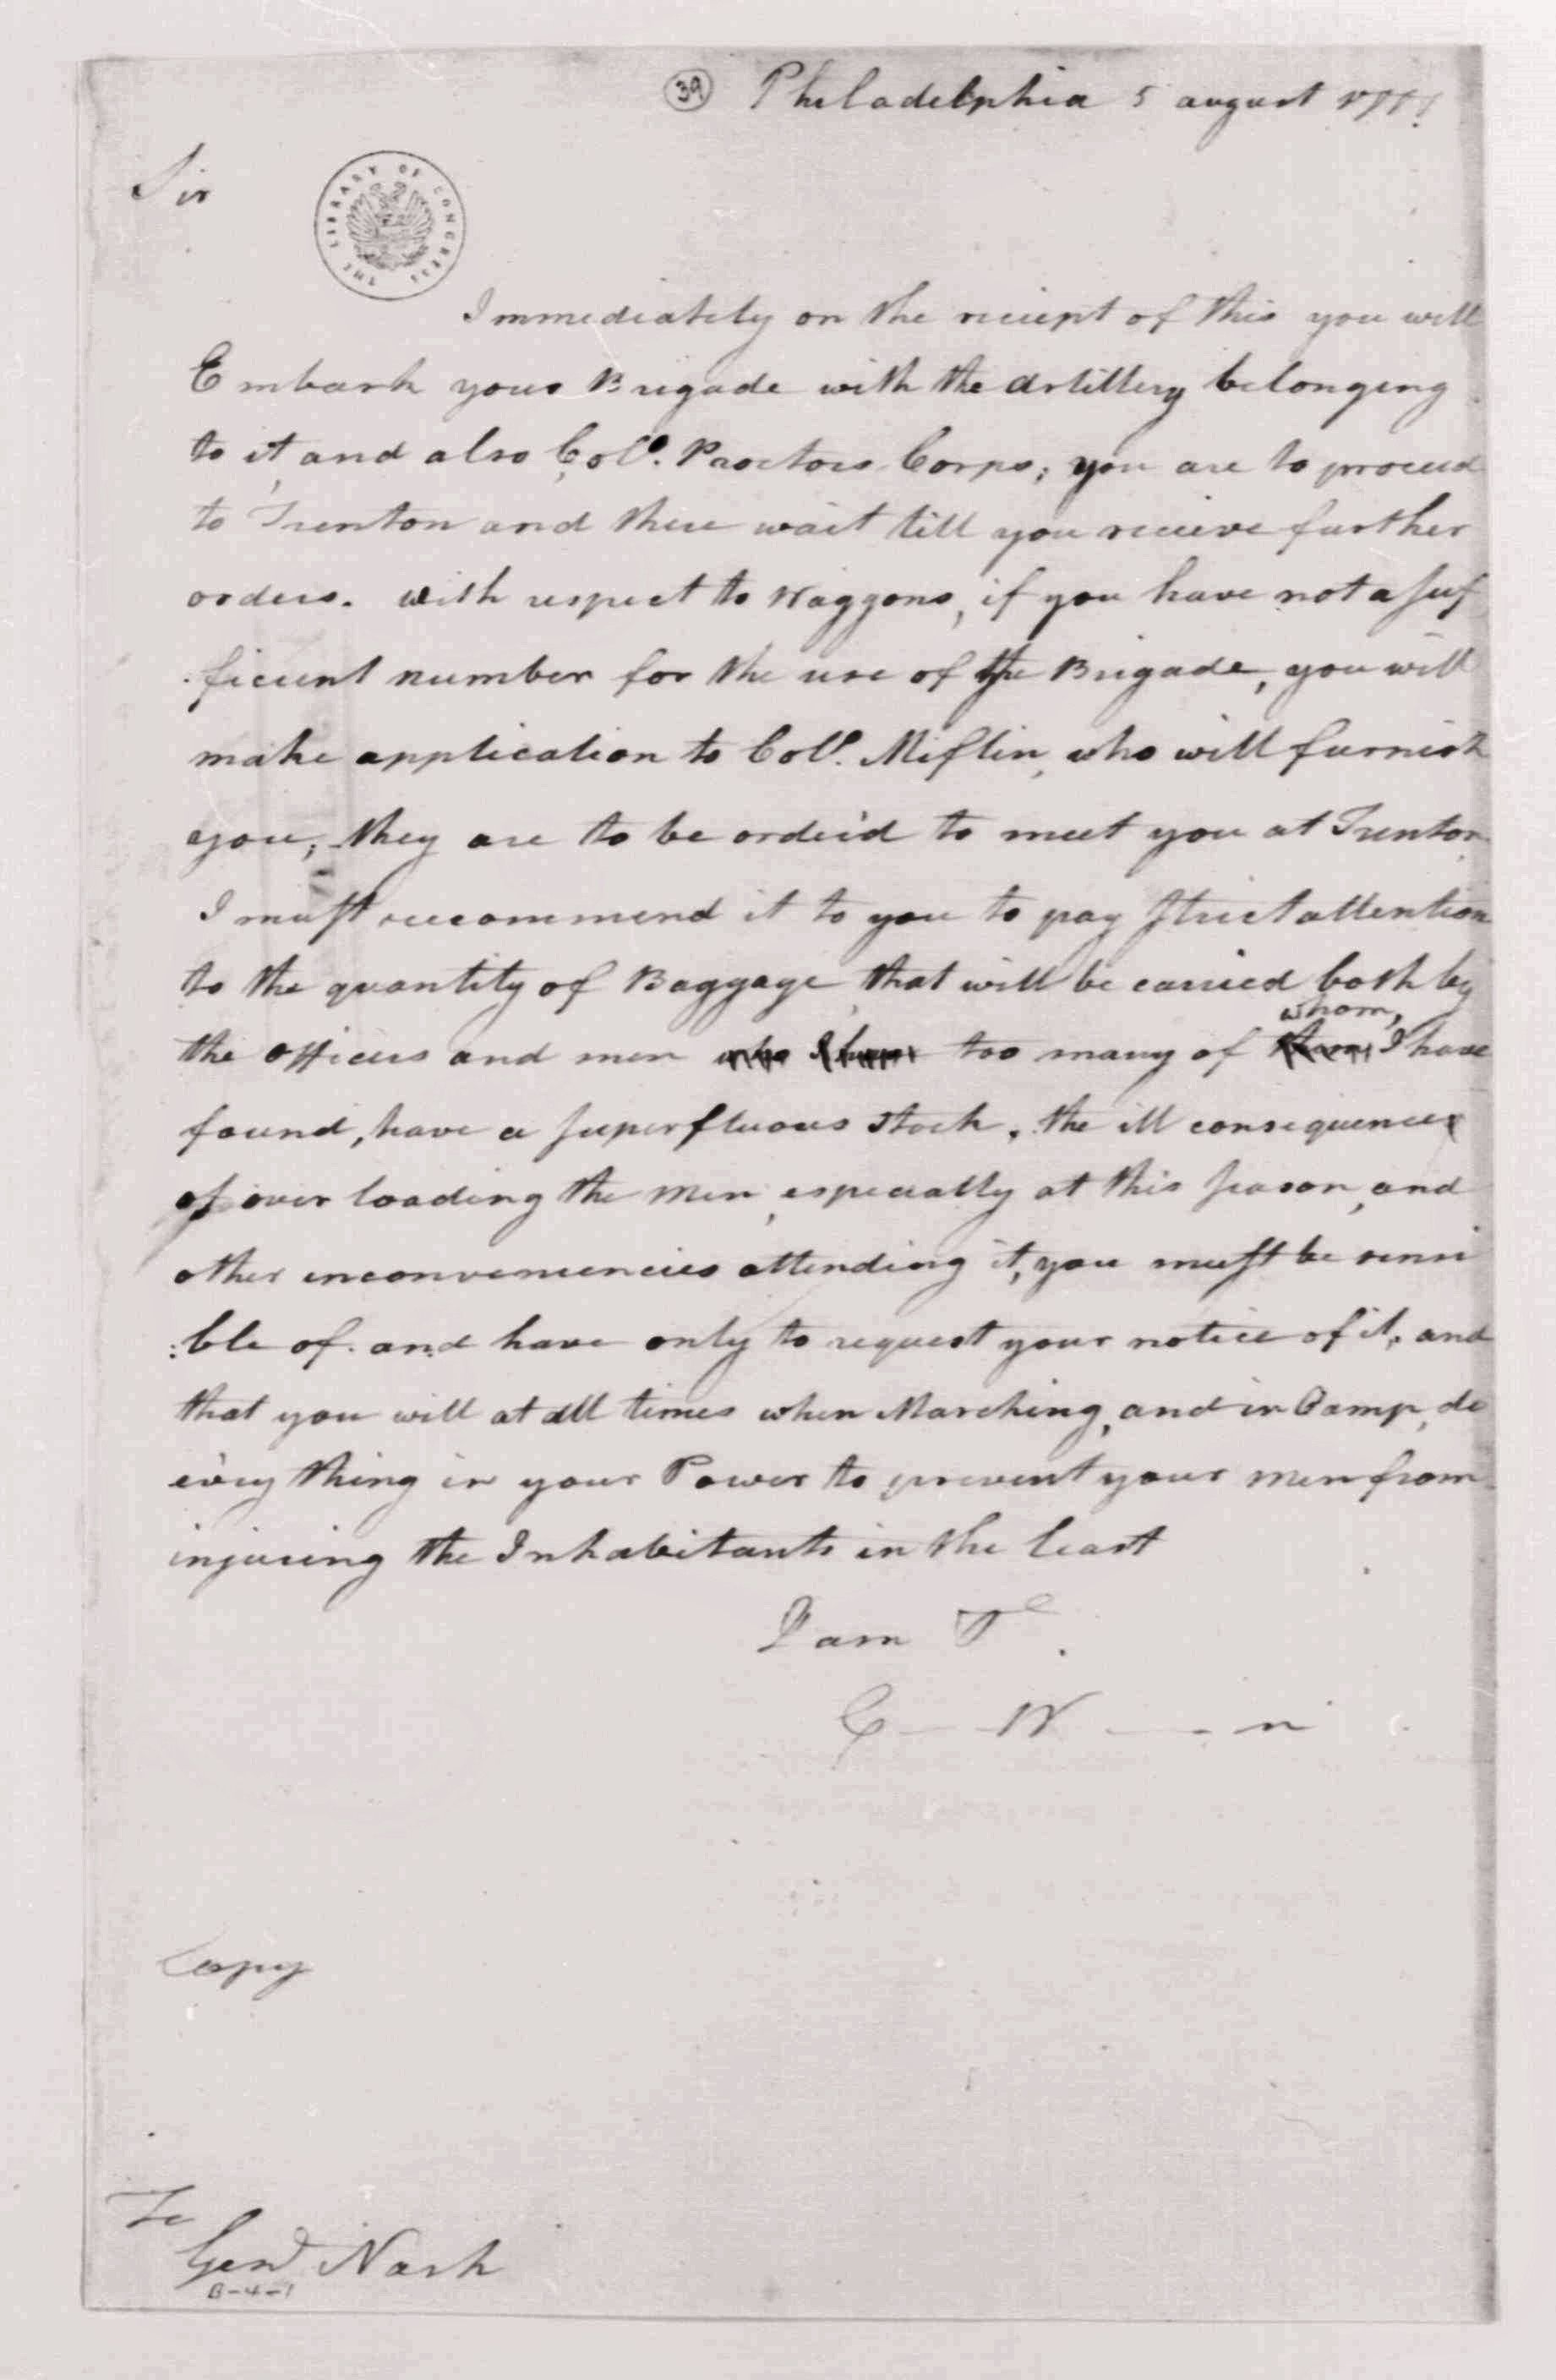 39 Philadelphia 5 august 1777
Sir
THE LIBRARY OF CONGRESS
Immediately on the reciept of this you will
Embark your Brigade with the artillery belonging
to it and also Coll. Proctors Corps; you are to proceed
to Trenton and there wait till you recieve further
orders. with respect to Waggons, if you have not a suf
ficient number for the use of the Brigade, you will
make application to Coll. Miflin, who will furnish
you; they are to be order'd to meet you at Trenton
I must reccommend it to you to pay strict attention
to the quantity of Baggage that will be carried both by
whom,
the officers and men who I have too many of them I have
found, have a superfluous stock. the ill consequences
of over loading the men, especially at this season, and
other inconveniencies attending it, you must be sensi
:ble of. and have only to request your notice of it, and
that you will at all times when Marching, and in Camp, do
every thing in your Power to prevent your men from
injuring the Inhabitants in the least
I am &c.
G— W—n
Copy
To
Genl Nash
B-4-1